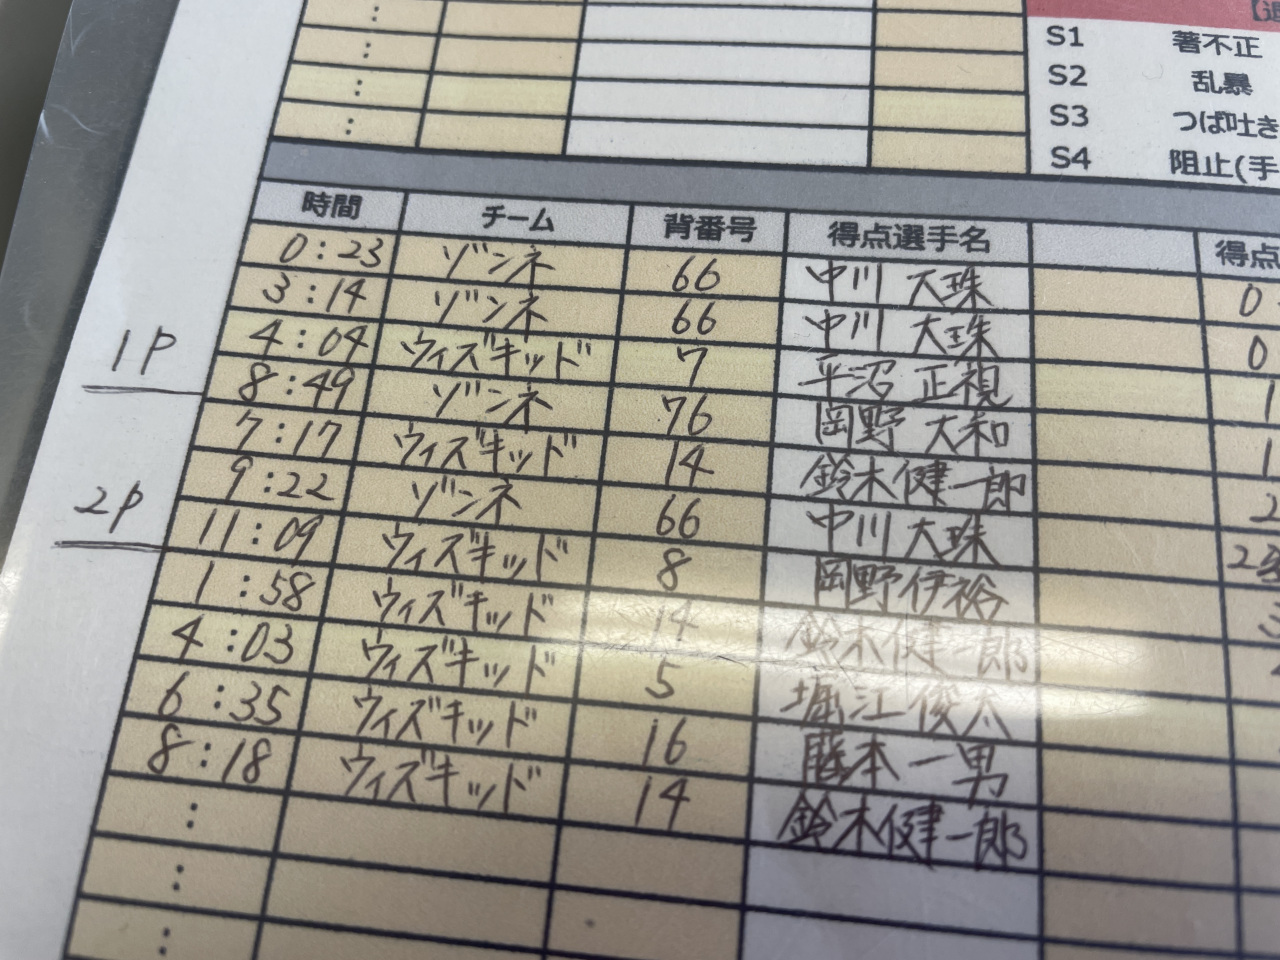 【退
S1 著不正
S2 乱暴
S3 つば吐き
S4 阻止(手
時間 チーム 背番号 得点選手名 得点
0:23 ゾンネ 66 中川 大珠 0
3:14 ゾンネ 66 中川 大珠 0
4:04 ウィズキッド 7 平沼 正視 1
1P
8:49 ゾンネ 76 岡野 大和 1
7:17 ウィズキッド 14 鈴木健一郎 2
9:22 ゾンネ 66 中川 大珠 2
2P
11:09 ウィズキッド 8 岡野伊裕
1:58 ウィズキッド 14 鈴木健一郎
4:03 ウィズキッド 5 堀江俊太
6:35 ウィズキッド 16 藤本一男
8:18 ウィズキッド 14 鈴木健一郎